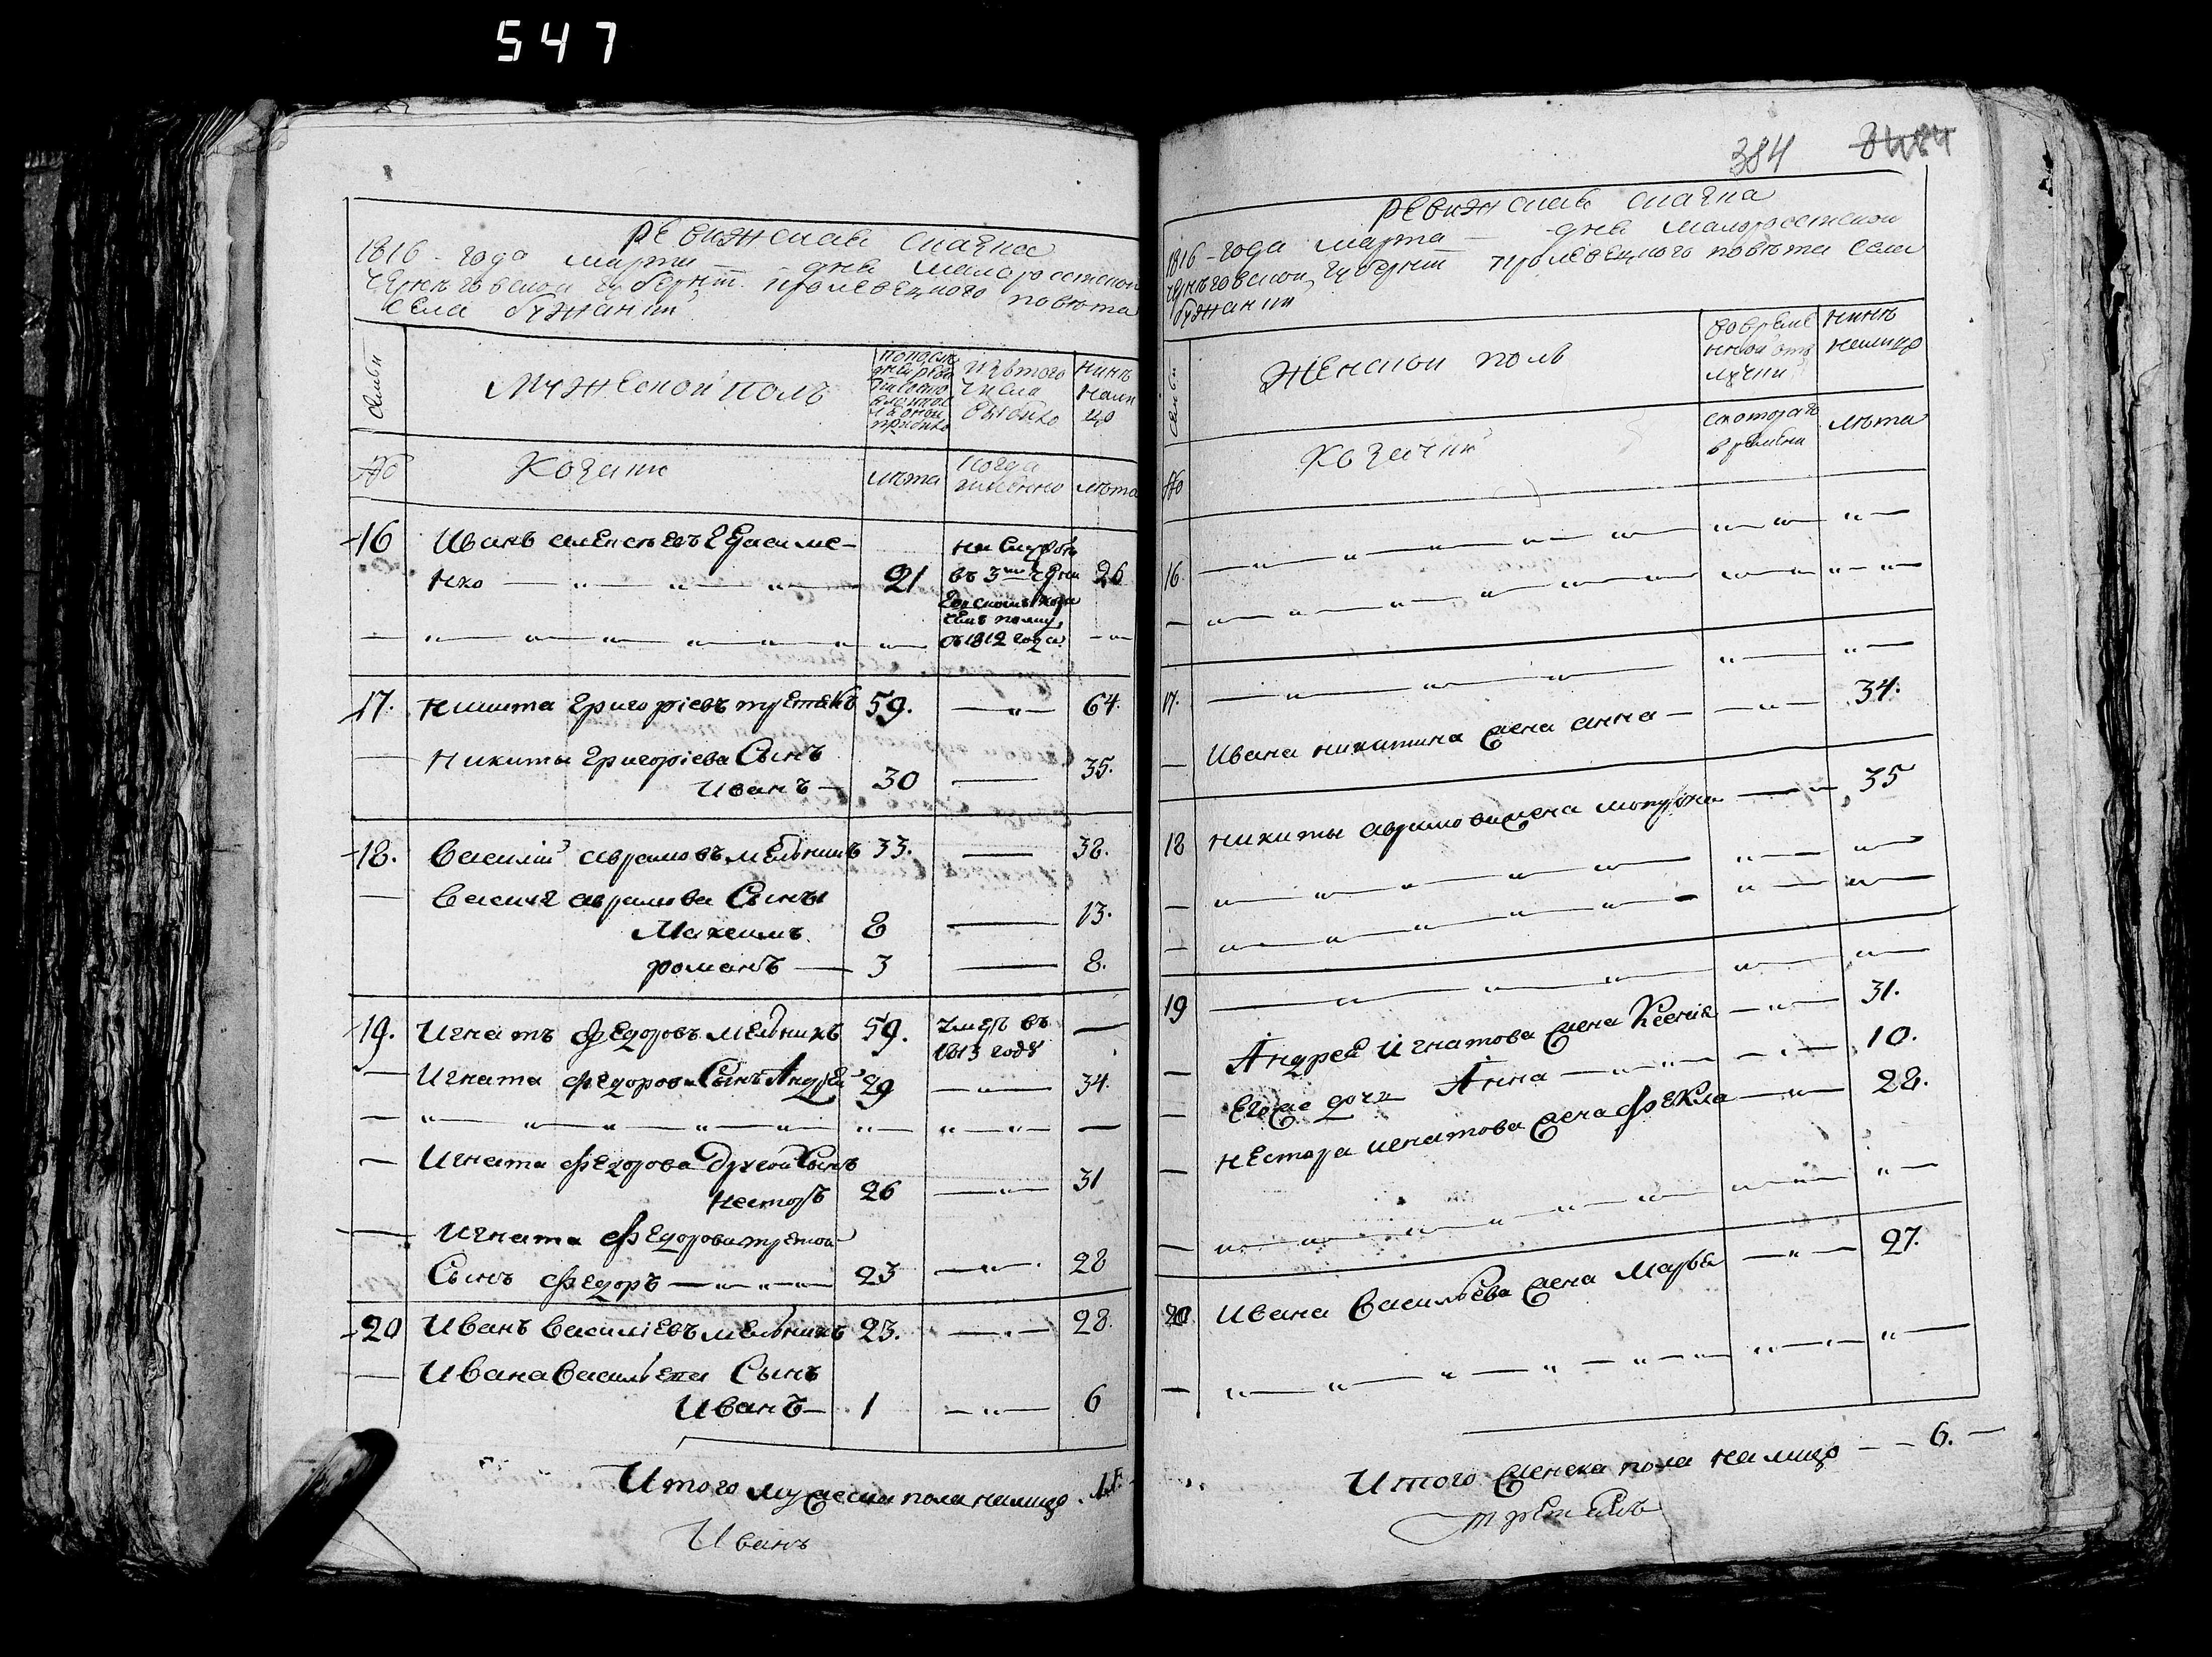 547
Ревижская сказка
1816 - года марта — дня малороссійской
Черниговской губерніи кролевецкого повета
села бужанки
семьи
Мужеской полъ
по последней ревизіи состояло и после оной прибыло
изътого числа выбыло
нинѣ налицо
№
Козаки
лета
когда именно
лета
16 Иванъ алексѣевъ Герасиме-
нко — 21 на службѣ въ 3м черниговскомъ козачемъ полку съ 1812 года 26
17. никита Григоріевъ третякъ 59. — 64.
Никиты Григоріева Сынъ
Иванъ — 30 — 35.
18. Василій аврамовъ мельникъ 33. — 38.
Василя аврамова Сыны
Максимъ 8 — 13.
романъ — 3 — 8.
19. Игнатъ Федоровъ мельникъ 59. умеръ въ 1813 годѣ —
Игната Федорова Сынъ Андрей 29 — 34.
Игната Федорова Другой Сынъ
Несторъ 26 — 31
Игната Федорова третой
Сынъ Федоръ — 23 — 28
20 Иванъ Василіевъ мельникъ 23. — 28.
Ивана Васильева Сынъ
Иванъ — 1 — 6
Итого мужеска пола налицо . 11.
Иванъ
384 8484
Ревижская сказка
1816 - года марта — дня малороссійской
Черниговской губерніи кролевецкого повета села
бужанки
семьи
Женской полъ
во временной отлучки
нинѣ налицо
№
Козачки
скоторагъ времени
лета
16
17.
Ивана никитина жена анна — 34.
18 никиты аврамова жена — 35
19
Андрея Игнатова жена Ксенія — 31.
Егоже дочь Анна — 10.
нестора игнатова жена Фекла — 28.
20 Ивана Васильева жена Марья — 27.
Итого женска пола налицо — 6. —
третякъ